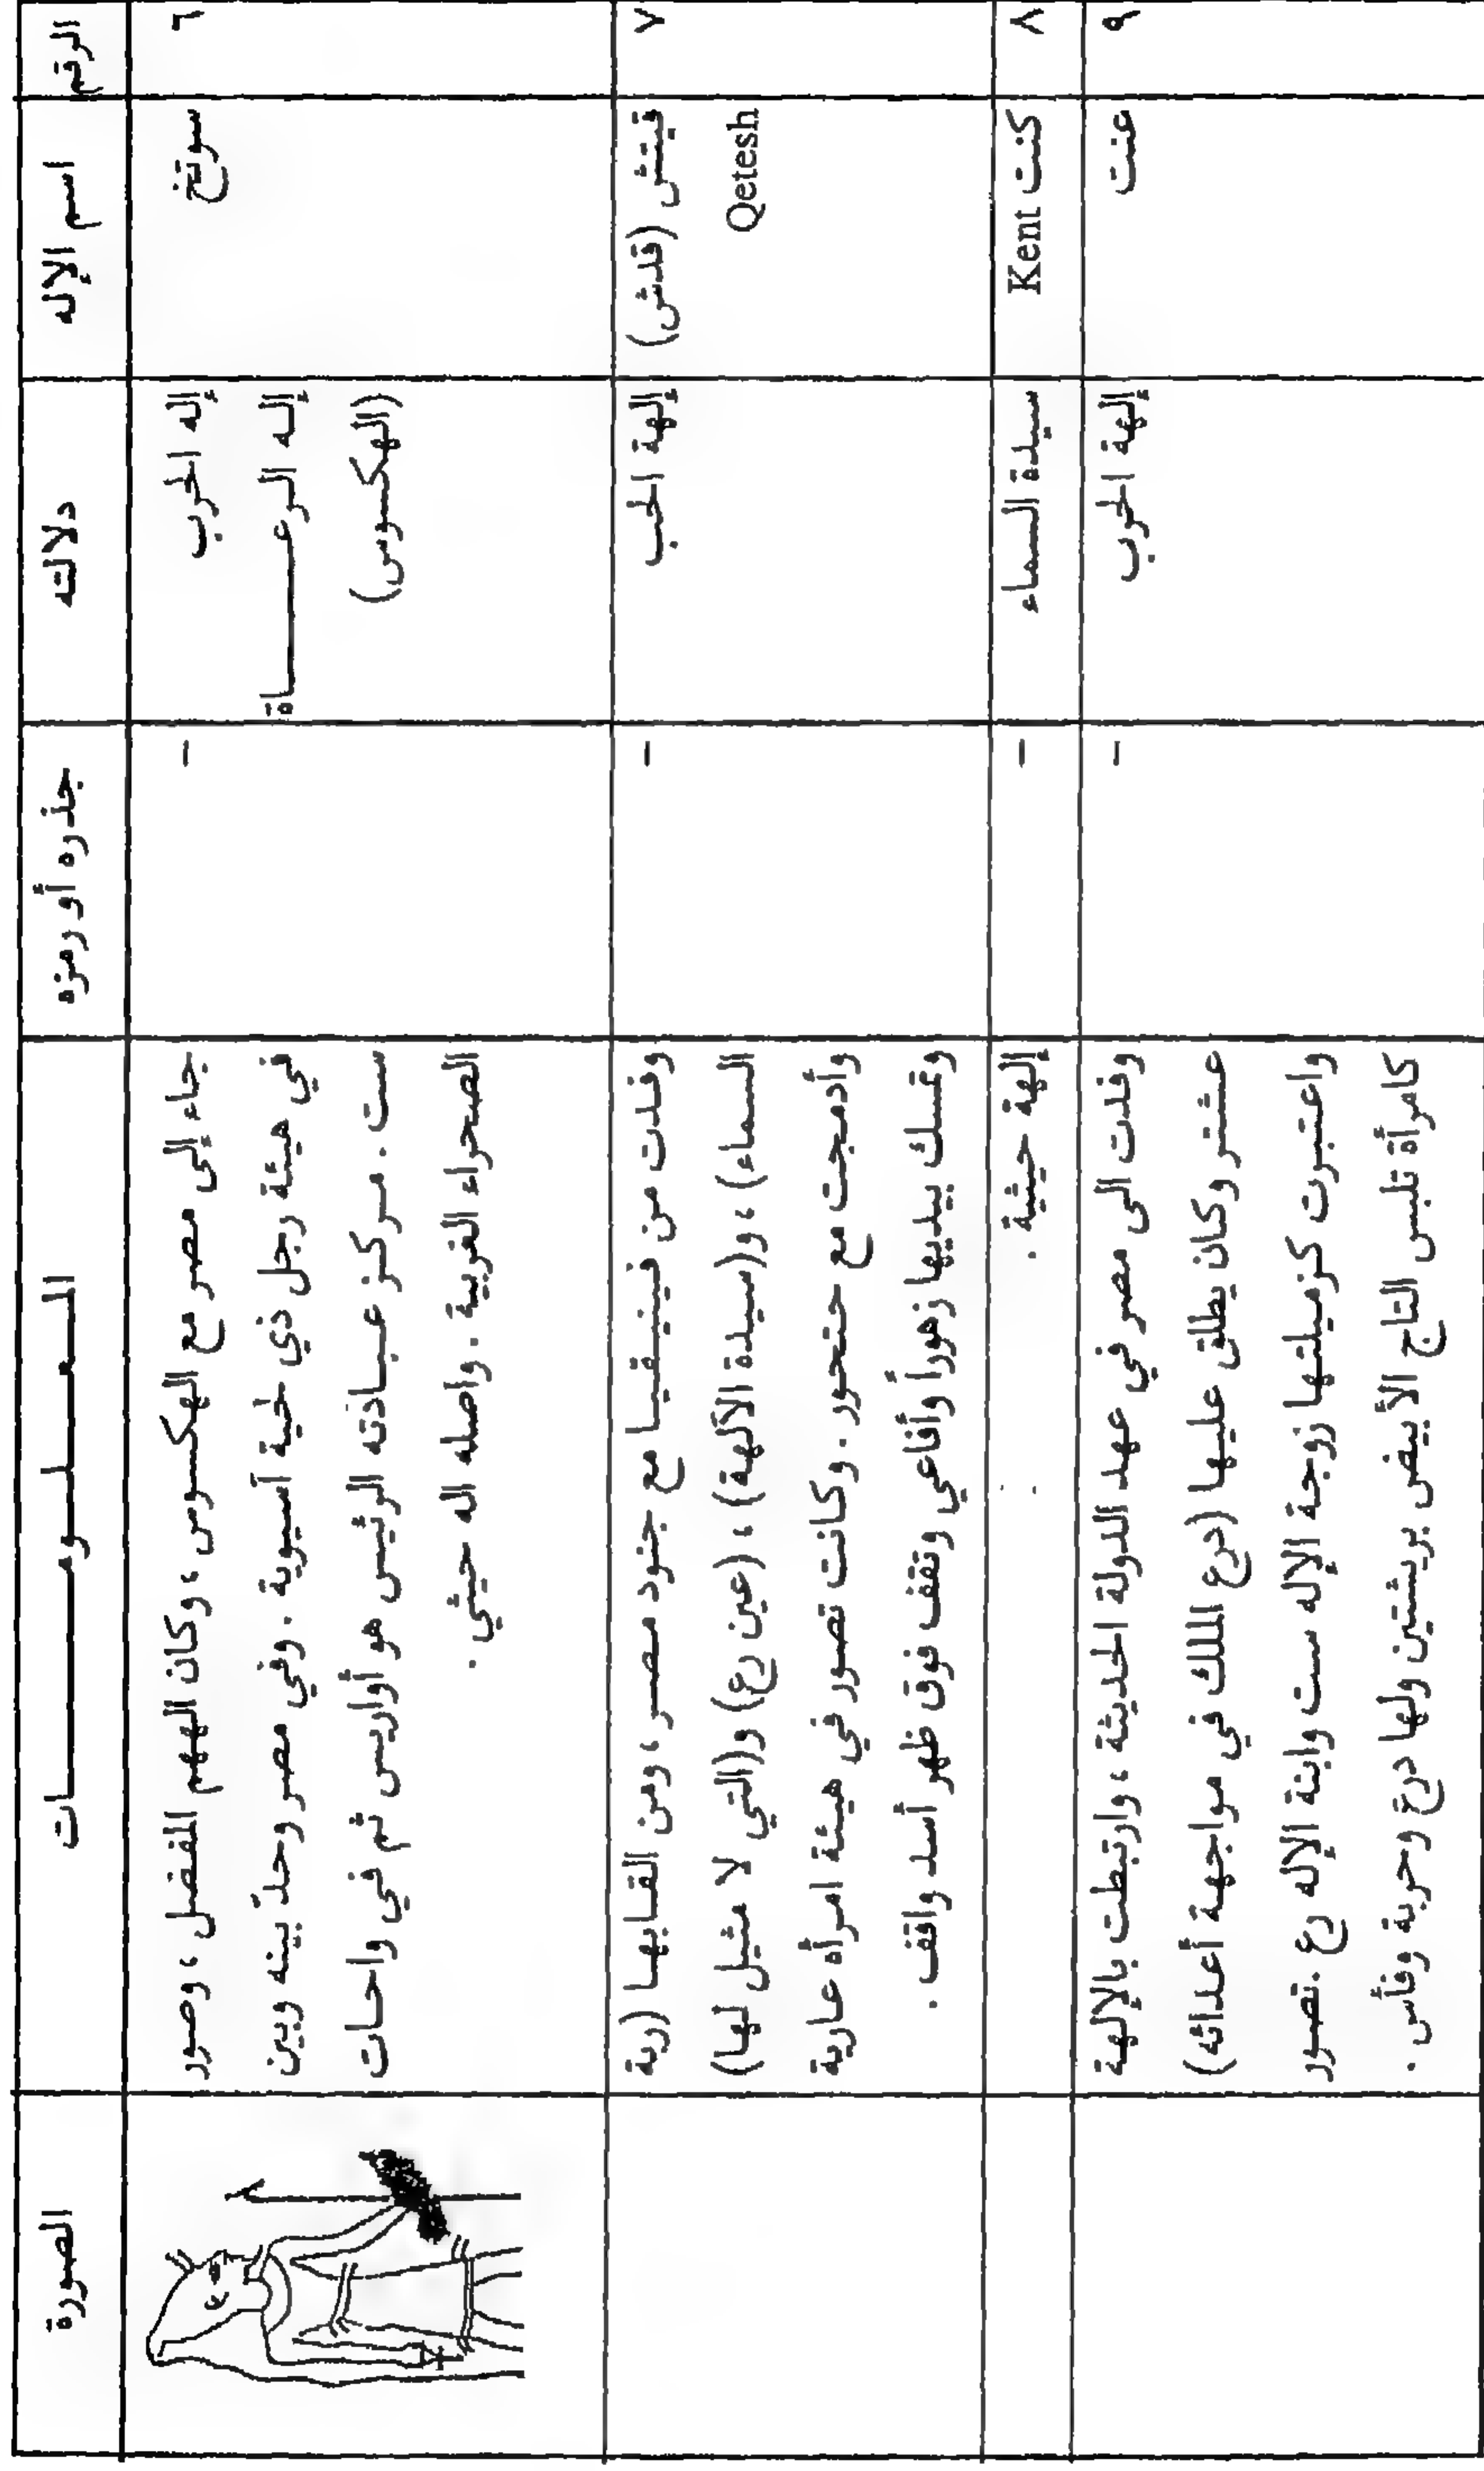 الرقم	اسم الإله	دلالته	جذره أو رمزه	المعلومات	الصورة
٦	سوتخ	إله الحرب	-	جاء إلى مصر مع الهكسوس، وكان الههم المفضل، وصور
إله الرعاة	في هيئة رجل ذي لحية آسيوية. وفي مصر وحدّ بينه وبين
(الهكسوس)	ست. مركز عبادته الرئيس هو أواريس ثم في واحات
الصحراء الغربية. واصله اله حيثي.
٧	قيتش (قدش)	إلهة الحب	-	وفدت من فينيقيا مع جنود مصر، ومن القابها (ربة
Qetesh	السماء)، و(سيدة الآلهة)، (عين رع) و(التي لا مثيل لها)
وأدمجت مع حتحور. وكانت تصور في هيئة امرأه عارية
وتمسك بيديها زهوراً وأفاعي وتقف فوق ظهر أسد واقف.
٨	كنت Kent	سيدة السماء	-	إلهة حيثية.
٩	عنت	إلهة الحرب	-	وفدت الى مصر في عهد الدولة الحديثة، وارتبطت بالإلهة
عشتر وكان يطلق عليها (درع الملك في مواجهة أعدائه)
واعتبرت كزميلتها زوجة الإله ست وابنة الإله رع. تصور
كامرأة تلبس التاج الأبيض بريشتين ولها درع وحربة وفأس.